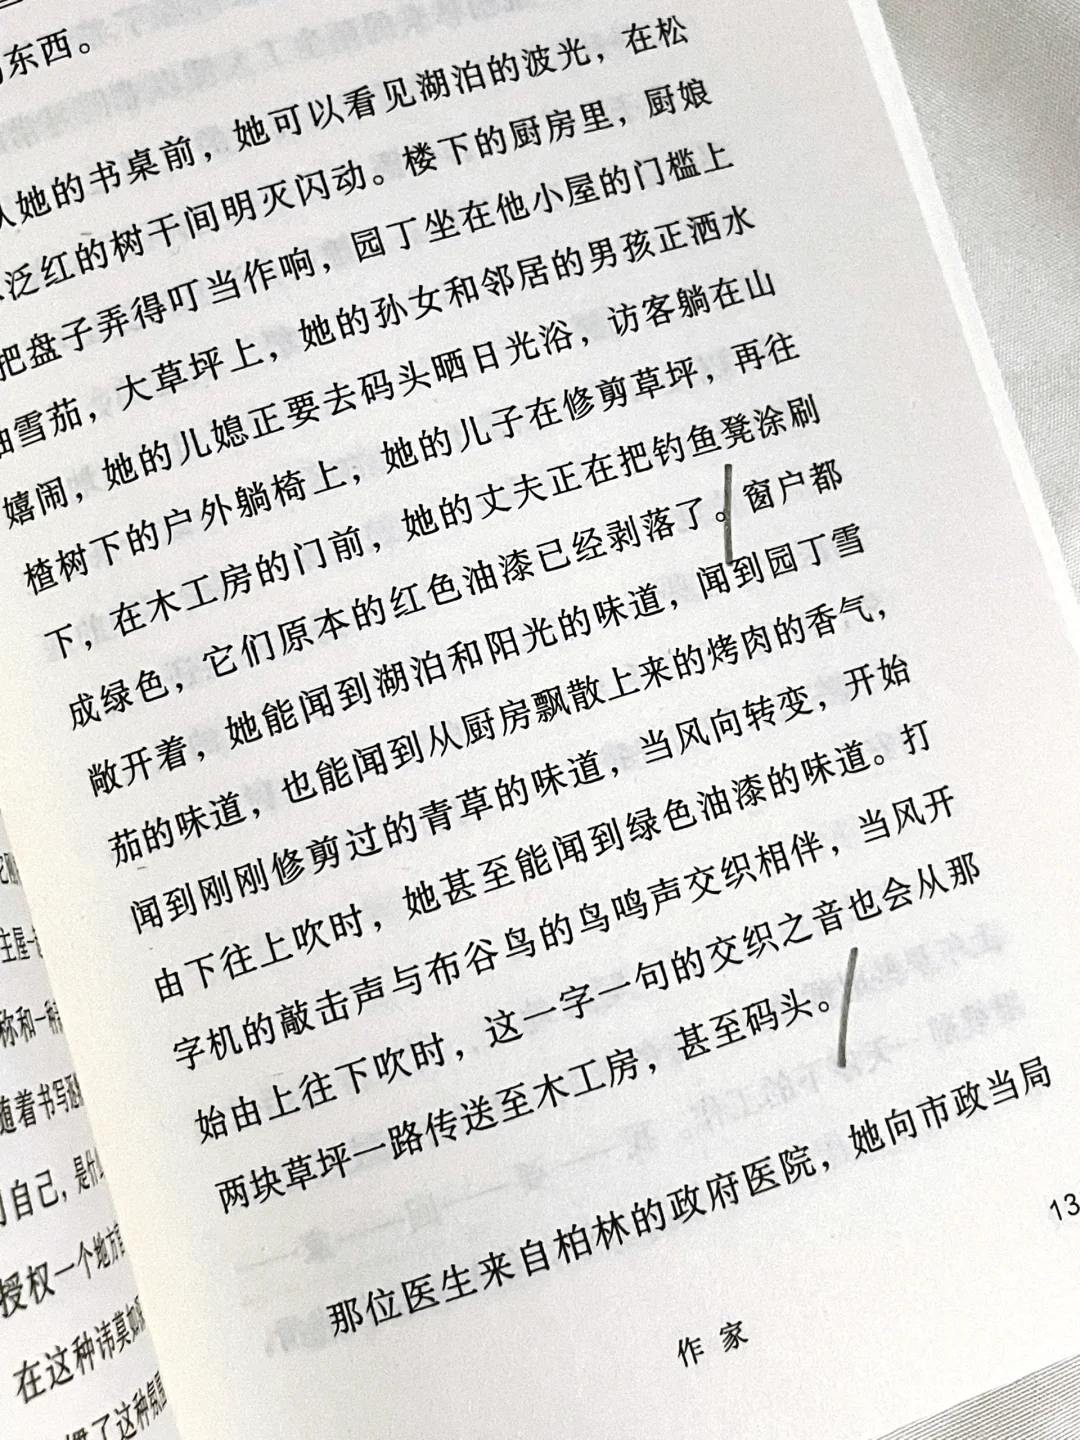 东西。
她的书桌前，她可以看见湖泊的波光，在松
泛红的树干间明灭闪动。楼下的厨房里，厨娘
把盘子弄得叮当作响，园丁坐在他小屋的门槛上
雪茄，大草坪上，她的孙女和邻居的男孩正洒水
嬉闹，她的儿媳正要去码头晒日光浴，访客躺在山
楂树下的户外躺椅上，她的儿子在修剪草坪，再往
下，在木工房的门前，她的丈夫正在把钓鱼凳涂刷
成绿色，它们原本的红色油漆已经剥落了。窗户都
敞开着，她能闻到湖泊和阳光的味道，闻到园丁雪
茄的味道，也能闻到从厨房飘散上来的烤肉的香气，
闻到刚刚修剪过的青草的味道，当风向转变，开始
由下往上吹时，她甚至能闻到绿色油漆的味道。打
字机的敲击声与布谷鸟的鸟鸣声交织相伴，当风开
始由上往下吹时，这一字一句的交织之音也会从那
两块草坪一路传送至木工房，甚至码头。
那位医生来自柏林的政府医院，她向市政当局
作家
13
主屋
称和一种
随着书写
自己，是什
授权一个地方
在这种讳莫如
了这种氛